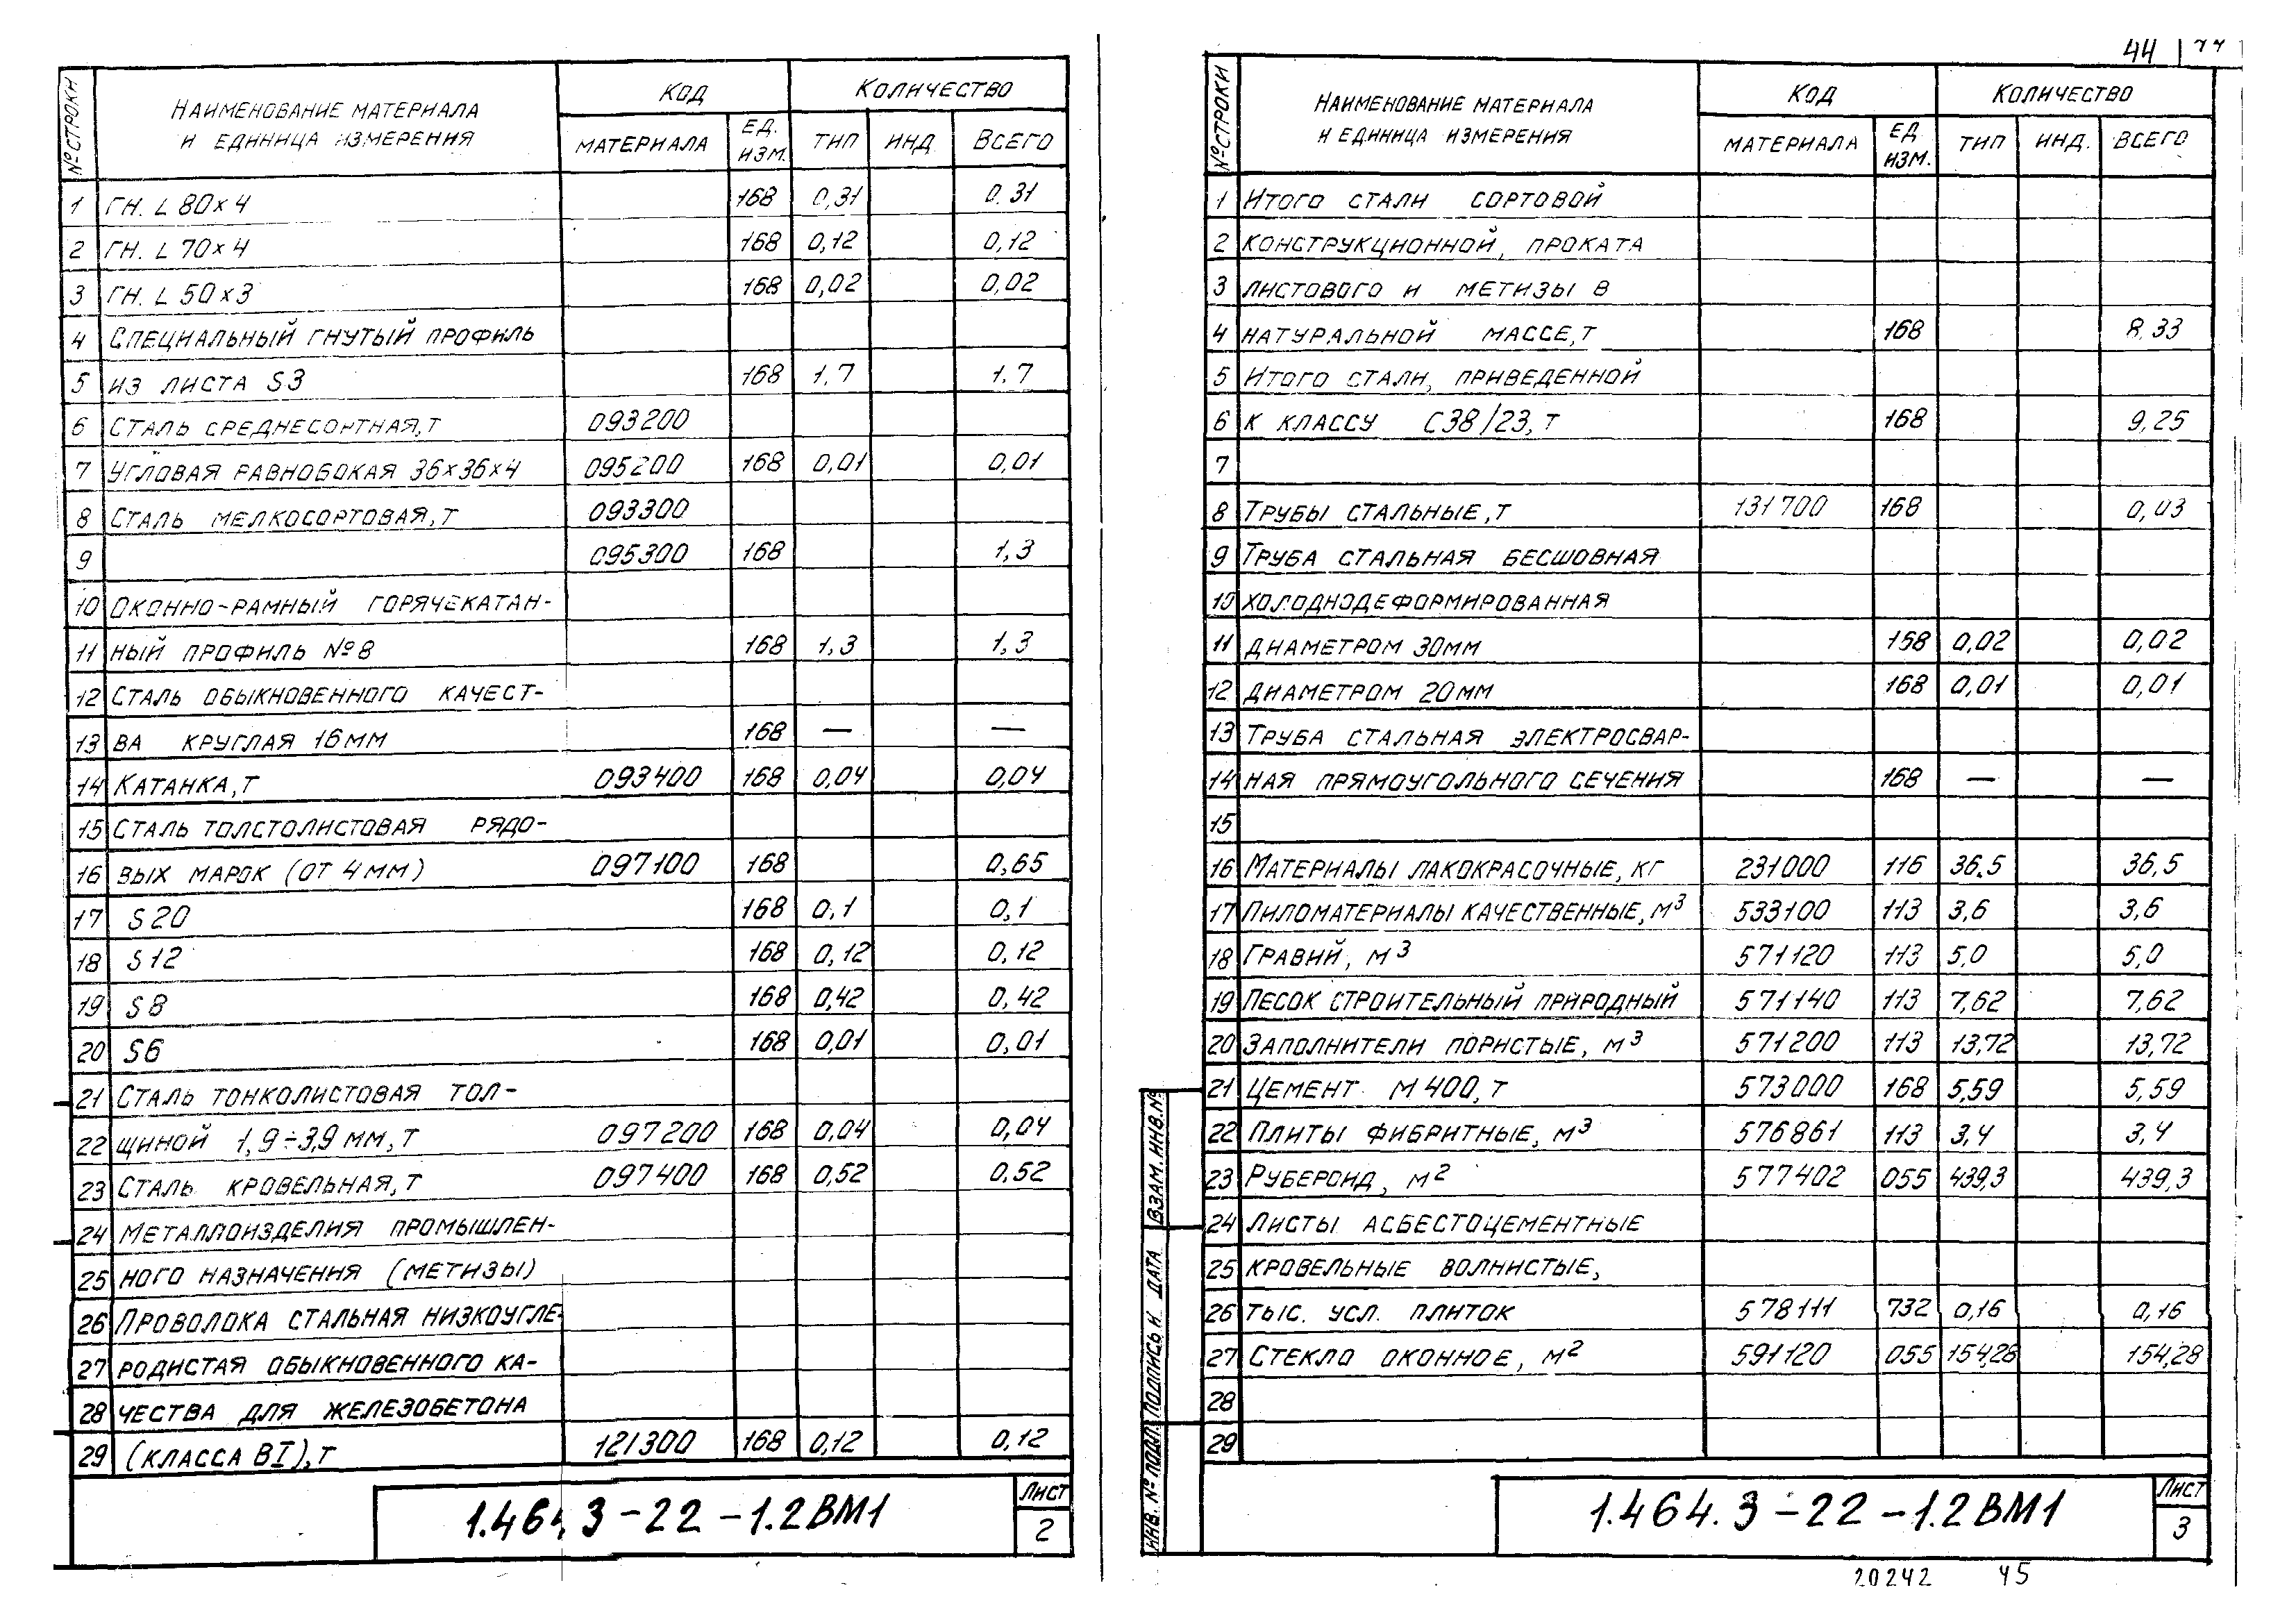 44
№ СТРОКИ НАИМЕНОВАНИЕ МАТЕРИАЛА И ЕДИНИЦА ИЗМЕРЕНИЯ КОД КОЛИЧЕСТВО
МАТЕРИАЛА ЕД. ИЗМ. ТИП ИНД. ВСЕГО
1 ГН. L 80×4 168 0,31 0.31
2 ГН. L 70×4 168 0,12 0,12
3 ГН. L 50×3 168 0,02 0,02
4 СПЕЦИАЛЬНЫЙ ГНУТЫЙ ПРОФИЛЬ
5 ИЗ ЛИСТА S3 168 1,7 1,7
6 СТАЛЬ СРЕДНЕСОРТНАЯ, Т 093200
7 УГЛОВАЯ РАВНОБОКАЯ 36×36×4 095200 168 0,01 0,01
8 СТАЛЬ МЕЛКОСОРТОВАЯ, Т 093300
9 095300 168 1,3
10 ОКОННО-РАМНЫЙ ГОРЯЧЕКАТАН-
11 НЫЙ ПРОФИЛЬ №8 168 1,3 1,3
12 СТАЛЬ ОБЫКНОВЕННОГО КАЧЕСТ-
13 ВА КРУГЛАЯ 16ММ 168 — —
14 КАТАНКА, Т 093400 168 0,04 0,04
15 СТАЛЬ ТОЛСТОЛИСТОВАЯ РЯДО-
16 ВЫХ МАРОК (ОТ 4ММ) 097100 168 0,65
17 S20 168 0,1 0,1
18 S12 168 0,12 0,12
19 S8 168 0,42 0,42
20 S6 168 0,01 0,01
21 СТАЛЬ ТОНКОЛИСТОВАЯ ТОЛ-
22 ЩИНОЙ 1,9÷3,9 ММ, Т 097200 168 0,04 0,04
23 СТАЛЬ КРОВЕЛЬНАЯ, Т 097400 168 0,52 0,52
24 МЕТАЛЛОИЗДЕЛИЯ ПРОМЫШЛЕН-
25 НОГО НАЗНАЧЕНИЯ (МЕТИЗЫ)
26 ПРОВОЛОКА СТАЛЬНАЯ НИЗКОУГЛЕ-
27 РОДИСТАЯ ОБЫКНОВЕННОГО КА-
28 ЧЕСТВА ДЛЯ ЖЕЛЕЗОБЕТОНА
29 (КЛАССА ВI), Т 121300 168 0,12 0,12
1.464.3-22-1.2ВМ1
ЛИСТ
2
№ СТРОКИ НАИМЕНОВАНИЕ МАТЕРИАЛА И ЕДИНИЦА ИЗМЕРЕНИЯ КОД КОЛИЧЕСТВО
МАТЕРИАЛА ЕД ИЗМ. ТИП ИНД. ВСЕГО
1 ИТОГО СТАЛИ СОРТОВОЙ
2 КОНСТРУКЦИОННОЙ, ПРОКАТА
3 ЛИСТОВОГО И МЕТИЗЫ В
4 НАТУРАЛЬНОЙ МАССЕ, Т 168 8,33
5 ИТОГО СТАЛИ, ПРИВЕДЕННОЙ
6 К КЛАССУ С38/23, Т 168 9,25
7
8 ТРУБЫ СТАЛЬНЫЕ, Т 131700 168 0,03
9 ТРУБА СТАЛЬНАЯ БЕСШОВНАЯ
10 ХОЛОДНОДЕФОРМИРОВАННАЯ
11 ДИАМЕТРОМ 30ММ 168 0,02 0,02
12 ДИАМЕТРОМ 20ММ 168 0,01 0,01
13 ТРУБА СТАЛЬНАЯ ЭЛЕКТРОСВАР-
14 НАЯ ПРЯМОУГОЛЬНОГО СЕЧЕНИЯ 168 — —
15
16 МАТЕРИАЛЫ ЛАКОКРАСОЧНЫЕ, КГ 231000 116 36.5 36,5
17 ПИЛОМАТЕРИАЛЫ КАЧЕСТВЕННЫЕ, М³ 533100 113 3,6 3,6
18 ГРАВИЙ, М³ 571120 113 5,0 5,0
19 ПЕСОК СТРОИТЕЛЬНЫЙ ПРИРОДНЫЙ 571140 113 7,62 7,62
20 ЗАПОЛНИТЕЛИ ПОРИСТЫЕ, М³ 571200 113 13,72 13,72
21 ЦЕМЕНТ М400, Т 573000 168 5,59 5,59
22 ПЛИТЫ ФИБРИТНЫЕ, М³ 576861 113 3,4 3,4
23 РУБЕРОИД, М² 577402 055 439,3 439,3
24 ЛИСТЫ АСБЕСТОЦЕМЕНТНЫЕ
25 КРОВЕЛЬНЫЕ ВОЛНИСТЫЕ,
26 ТЫС. УСЛ. ПЛИТОК 578111 732 0,16 0,16
27 СТЕКЛО ОКОННОЕ, М² 591120 055 154,28 154,28
28
29
ВЗАМ. ИНВ. №
ПОДПИСЬ И ДАТА
ИНВ. № ПОДЛ.
1.464.3-22-1.2ВМ1
ЛИСТ
3
20242 45